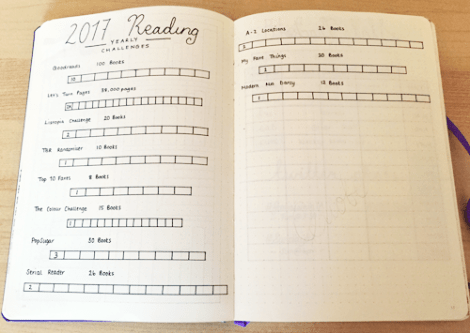 2017 Reading
YEARLY
CHALLENGES
Goodreads 100 Books
10
Let's Turn Pages 38,000 pages
Listopia Challenge 20 Books
2
TBR Remember 10 Books
1
Top 50 Pants 8 Books
1
The Colour Challenge 15 Books
1
PopSugar 50 Books
3
Serial Reader 26 Books
2
A-Z Locations 26 Books
My Fave Things 30 Books
Modern Non 12 Books